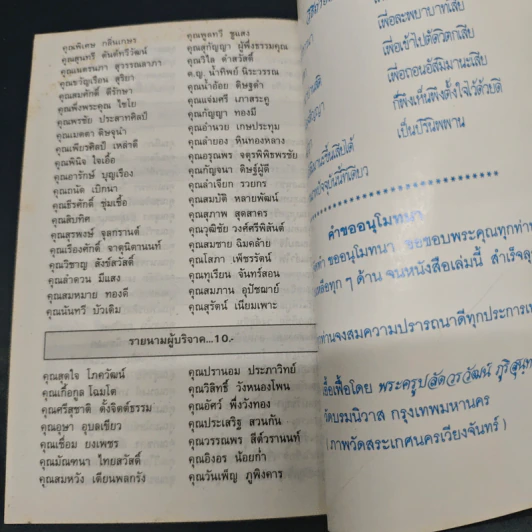 คุณพิเศษ กลิ่นเกษร
คุณสุนทรี ตันศัทรีวัฒน์
คุณเนตรนภา สุวรรณลาภา
คุณขวัญเรียน สุริยา
คุณสมศักดิ์ ดีรักษา
คุณพึ่งพระคุณ ไชโย
คุณพรชัย ประสาทศิลป์
คุณเมตตา ดิษฐนำ
คุณเพียรศิลป์ เหล่าดี
คุณพินิจ ใจเอื้อ
คุณอารักษ์ บุญเรือง
คุณถนัด เบิกนา
คุณธีรศักดิ์ ชุ่มเชื้อ
คุณสิบทิศ
คุณสุรพงษ์ จุลกรานต์
คุณเรืองศักดิ์ จาตุนิตานนท์
คุณวิชาญ สังข์สวัสดิ์
คุณลำดวน มีแสง
คุณสมหมาย ทองดี
คุณนันทรี บัวเติม
คุณพูลทวี ชูแสง
คุณสุกัญญา ผู้พึ่งธรรมคุณ
คุณวิไล ดำสวัสดิ์
ด.ญ. น้ำทิพย์ นิระวรรณ
คุณน้ำอ้อย ดิษฐดำ
คุณแจ่มศรี เภาสระคู
คุณกัญญา ทองมี
คุณอำนวย เกษประทุม
คุณลำยอง หินทองหลาง
คุณอรุณพร จตุรพิพิธพรชัย
คุณกัญจนา ดิษฐ์ผู้ดี
คุณลำเจียก รวยกร
คุณสมบัติ หลายพัฒน์
คุณสุภาพ สุดสาคร
คุณวุฒิชัย วงศ์ศรีพิสันต์
คุณสมชาย ฉิมคล้าย
คุณโสภา เพ็ชรรัตน์
คุณทุเรียน จันทร์สอน
คุณสมภาน อุปัชฌาย์
คุณสุรัตน์ เนียมเพาะ
รายนามผู้บริจาค...10.-
คุณสุดใจ โภควัฒน์
คุณเกื้อกูล โฉมโต
คุณศรีสุชาติ ตั้งจิตต์ธรรม
คุณอุษา อุบลเขียว
คุณเชื่อม ยงเพชร
คุณมัณฑนา ไทยสวัสดิ์
คุณสมหวัง เตียนพลกรัง
คุณปรานอม ประภาวิทย์
คุณวิสิทธิ์ วังหนองโพน
คุณอัศว์ พึ่งวังทอง
คุณประเสริฐ สวนกัน
คุณวรรณพร สีตัวรานนท์
คุณอิงอร น้อยก่ำ
คุณวันเพ็ญ ภูพิงคาร
เพื่อละพยาบาทเสีย
เพื่อเข้าไปตัดวิตกเสีย
เพื่อถอนอัสมิมานะเสีย
ก็พึงเห็นพึงตั้งใจไว้ด้วยดี
เป็นปรินิพพาน
คำขออนุโมทนา
ขออนุโมทนา ขอขอบพระคุณทุกท่าน
ทุก ๆ ด้าน จนหนังสือเล่มนี้ สำเร็จลุ
ท่านจงสมความปรารถนาดีทุกประการเท
เอื้อเฟื้อโดย พระครูปลัดวรวัฒน์
วัดบรมนิวาส กรุงเทพมหานคร
(ภาพวัดสระเกศนครเวียงจันทร์)